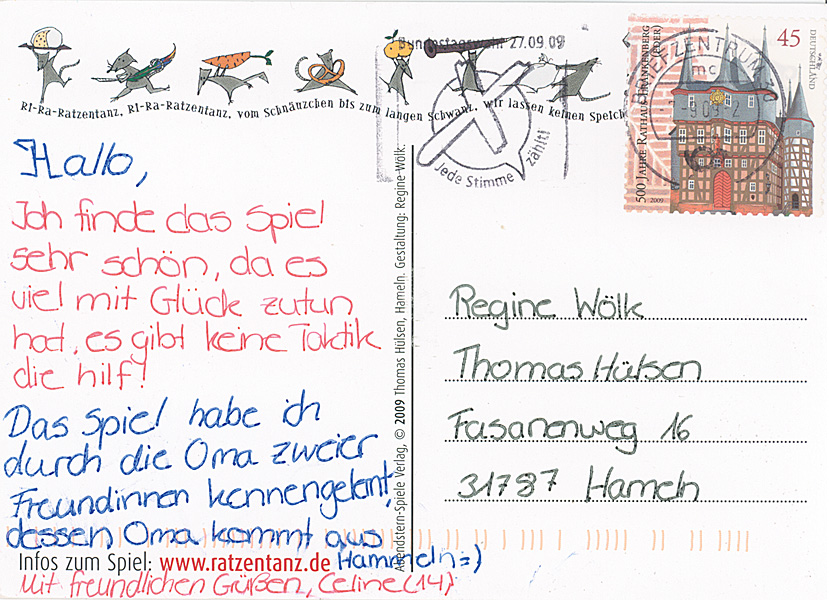 RI-Ra-Ratzentanz, RI-Ra-Ratzentanz, vom Schnäuzchen bis zum langen Schwanz, wir lassen keinen Speich
Bundestagswahl 27.09.09
Jede Stimme zählt!
BRIEFZENTRUM
mc
500 JAHRE RATHAUS FRANKENBERG (EDER)
45
DEUTSCHLAND
2009
Hallo,
Ich finde das Spiel
sehr schön, da es
viel mit Glück zutun
hat, es gibt keine Taktik
die hilf!
Das Spiel habe ich
durch die Oma zweier
Freundinnen kennengelernt,
dessen Oma kommt aus
Hammeln =)
Mit freundlichen Grüßen, Celine (14)
Infos zum Spiel: www.ratzentanz.de
Abendstern-Spiele Verlag, © 2009 Thomas Hülsen, Hameln. Gestaltung: Regine Wölk.
Regine Wölk
Thomas Hülsen
Fasanenweg 16
31787 Hameln